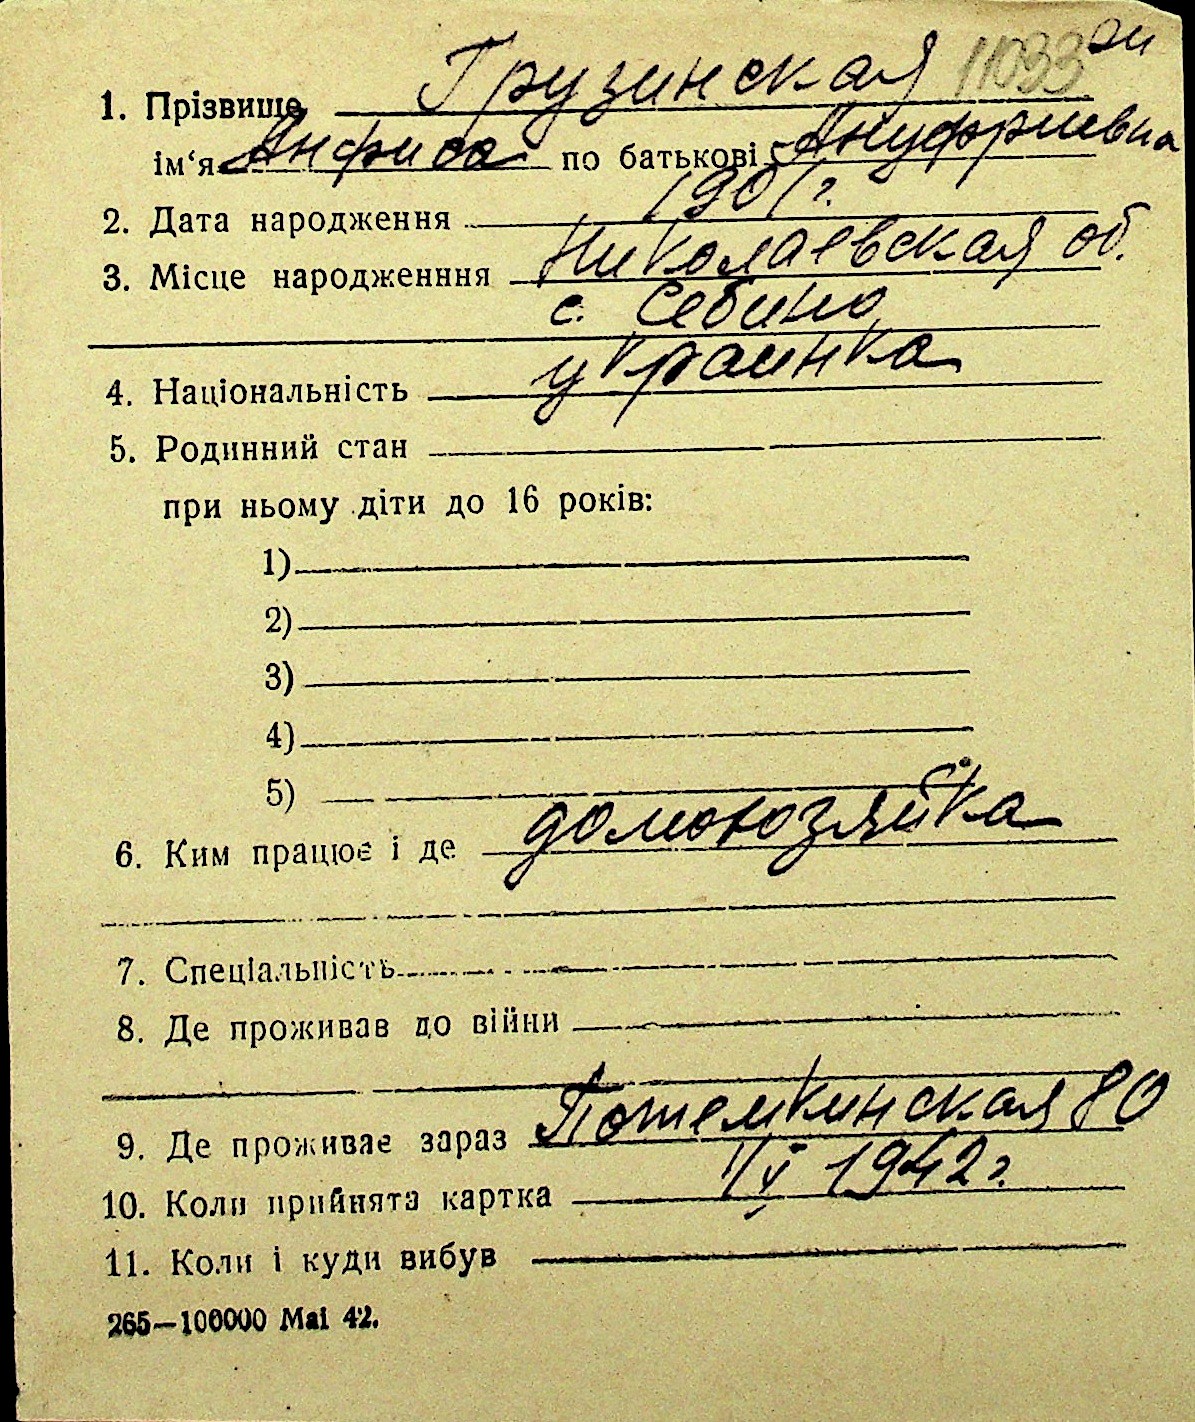 1. Прізвище Грузинская 11033 эи
ім‘я Анфиса по батькові Ануфриевна
2. Дата народження 1901 г.
3. Місце народженння Николаевская об.
с. Себино
4. Національність украинка
5. Родинний стан
при ньому діти до 16 років:
1)
2)
3)
4)
5)
6. Ким працює і де домохозяйка
7. Спеціальність
8. Де проживав до війни
9. Де проживає зараз Потемкинская 80
10. Коли прийнята картка 1/V 1942 г.
11. Коли і куди вибув
265—100000 Маі 42.